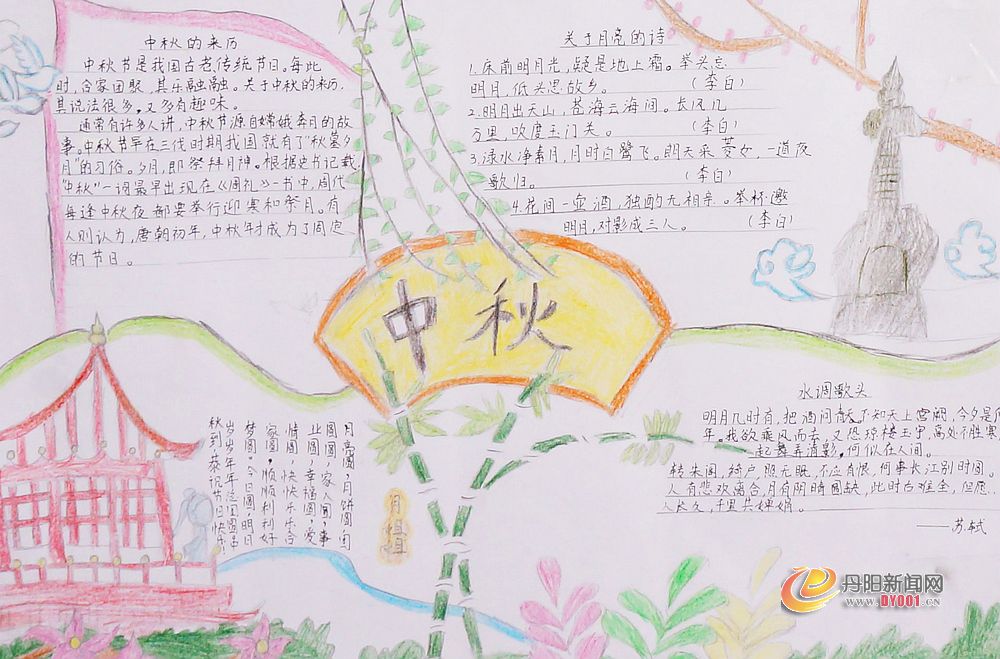 中秋的来历
中秋节是我国古老传统节日。每此
时,合家团聚,其乐融融。关于中秋的来历,
其说法很多,又多有趣味。
通常有许多人讲,中秋节源自嫦娥奔月的故
事。中秋节早在三代时期我国就有了"秋暮夕
月"的习俗。夕月,即祭拜月神。根据史书记载
"中秋"一词最早出现在《周礼》一书中,周代
每逢中秋夜都要举行迎寒和祭月。有
人则认为,唐朝初年,中秋年才成为了固定
的节日。
关于月亮的诗
1.床前明月光,疑是地上霜。举头忘
明月,低头思故乡。(李白)
2.明月出天山,苍海云海间。长风几
万里,吹度玉门关。(李白)
3.渌水净素月,月时白鹭飞。明天采菱女,一道夜
歌归。(李白)
4.花间一壶酒,独酌无相亲。举杯邀
明月,对影成三人。(李白)
中秋
月亮圆,月饼圆
业圆圆,家人圆,事
圆圆,幸福圆,爱
情圆,快快乐乐合
家圆,顺顺利利好
梦圆,今日圆,明日
岁岁年年
秋到
月姐姐
水调歌头
明月几时有,把酒问青天,不知天上宫阙,今夕是何
年。我欲乘风而去,又恐琼楼玉宇,高处不胜寒
起舞弄清影,何似在人间。
转朱阁,绮户,照无眠,不应有恨,何事长江别时圆。
人有悲欢离合,月有阴晴圆缺,此时古难全,但愿
人长久,千里共婵娟。
——苏轼
丹阳新闻网
www.DY001.CN